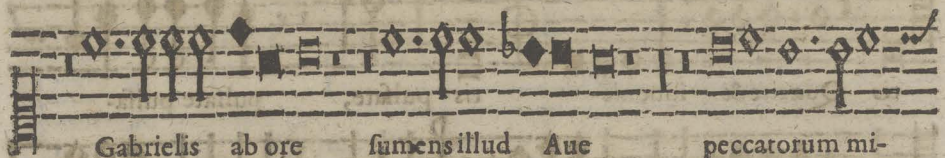 Gabrielis ab ore ſumens illud Aue peccatorum mi-